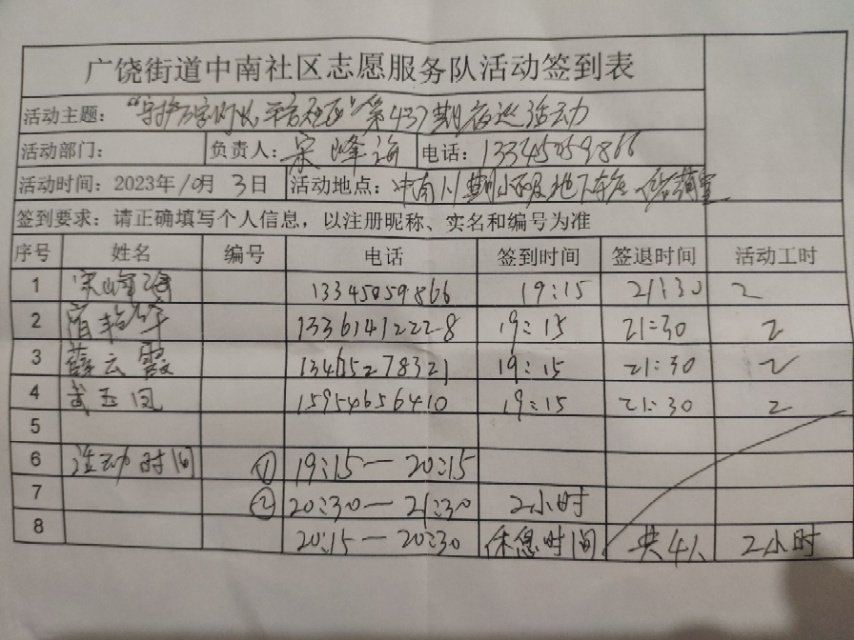 广饶街道中南社区志愿服务队活动签到表
活动主题：“守护万家灯火 平安社区”第437期夜巡活动
活动部门： 负责人：宋峰海 电话：13345059866
活动时间：2023年10月3日 活动地点：中南 期小区及地下车库
签到要求：请正确填写个人信息，以注册昵称、实名和编号为准
序号 姓名 编号 电话 签到时间 签退时间 活动工时
1 宋峰海 13345059866 19:15 21:30 2
2 艳华 13361412228 19:15 21:30 2
3 薛云霞 13465278321 19:15 21:30 2
4 武玉凤 15954656410 19:15 21:30 2
5
6 活动时间 ① 19:15—20:15
7 ② 20:30—21:30 2小时
8 20:15—20:30 休息时间 共4人 2小时